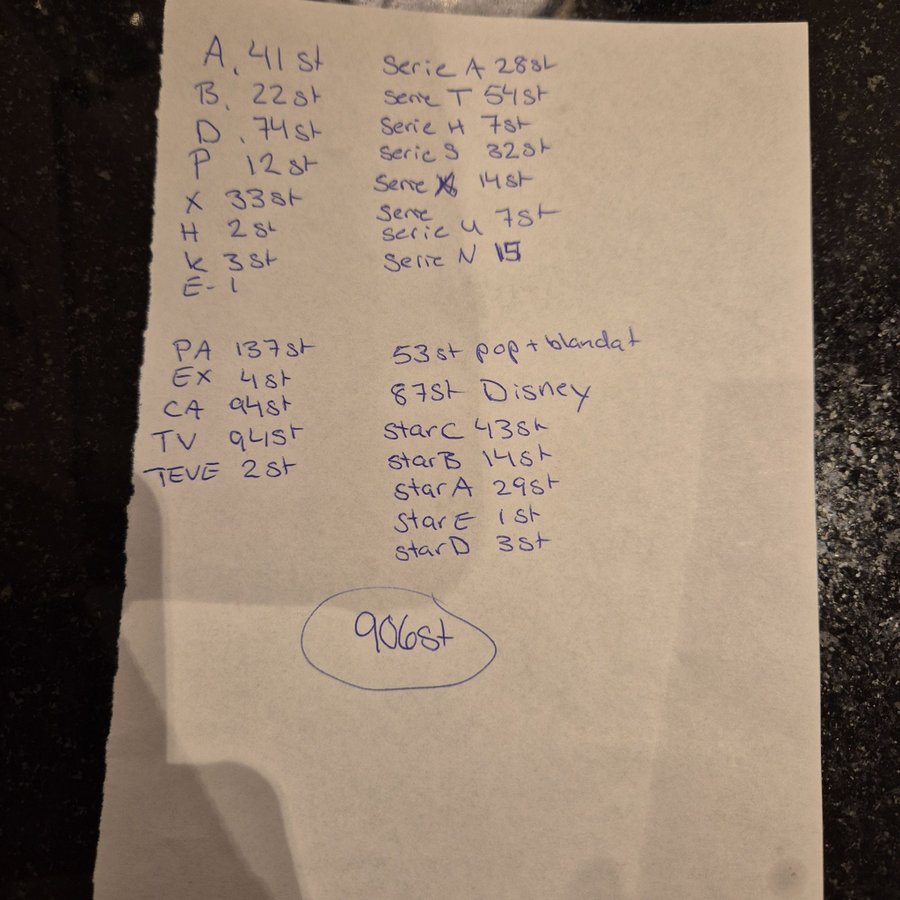 A. 41 st
B. 22 st
D. 74 st
P 12 st
X 33 st
H 2 st
K 3 st
E- 1
Serie A 28 st
Serie T 54 st
Serie H 7 st
Serie S 32 st
Serie X 14 st
Serie
Serie U 7 st
Serie N 15
PA 137 st
EX 4 st
CA 94 st
TV 94 st
TEVE 2 st
53 st pop + blandat
87 st Disney
star C 43 st
star B 14 st
star A 29 st
star E 1 st
star D 3 st
906 st